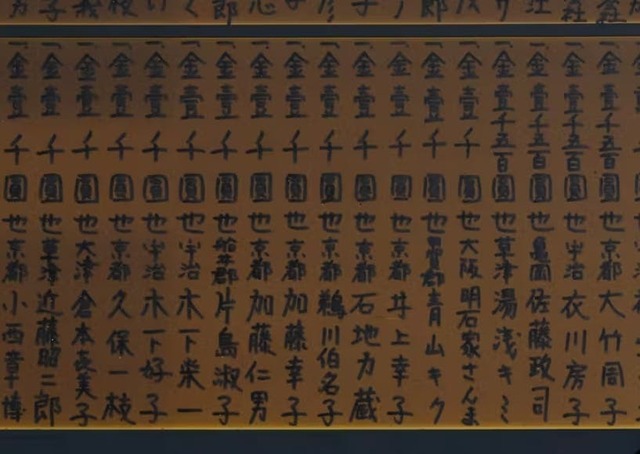 一金壹千五百圓也京都大竹周子
一金壹千五百圓也宇治衣川房子
一金壹千五百圓也亀岡佐藤政司
一金壹千五百圓也草津湯浅キミ
一金壹千圓也大阪明石家さんま
一金壹千圓也青山キク
一金壹千圓也京都井上幸子
一金壹千圓也京都石地力蔵
一金壹千圓也京都鵜川伯名子
一金壹千圓也京都加藤幸子
一金壹千圓也京都加藤仁男
一金壹千圓也船井郡片島淑子
一金壹千圓也宇治木下栄一
一金壹千圓也宇治木下好子
一金壹千圓也京都久保一枝
一金壹千圓也大津倉本喜美子
一金壹千圓也草津近藤昭二郎
一金壹千圓也京都小西章博